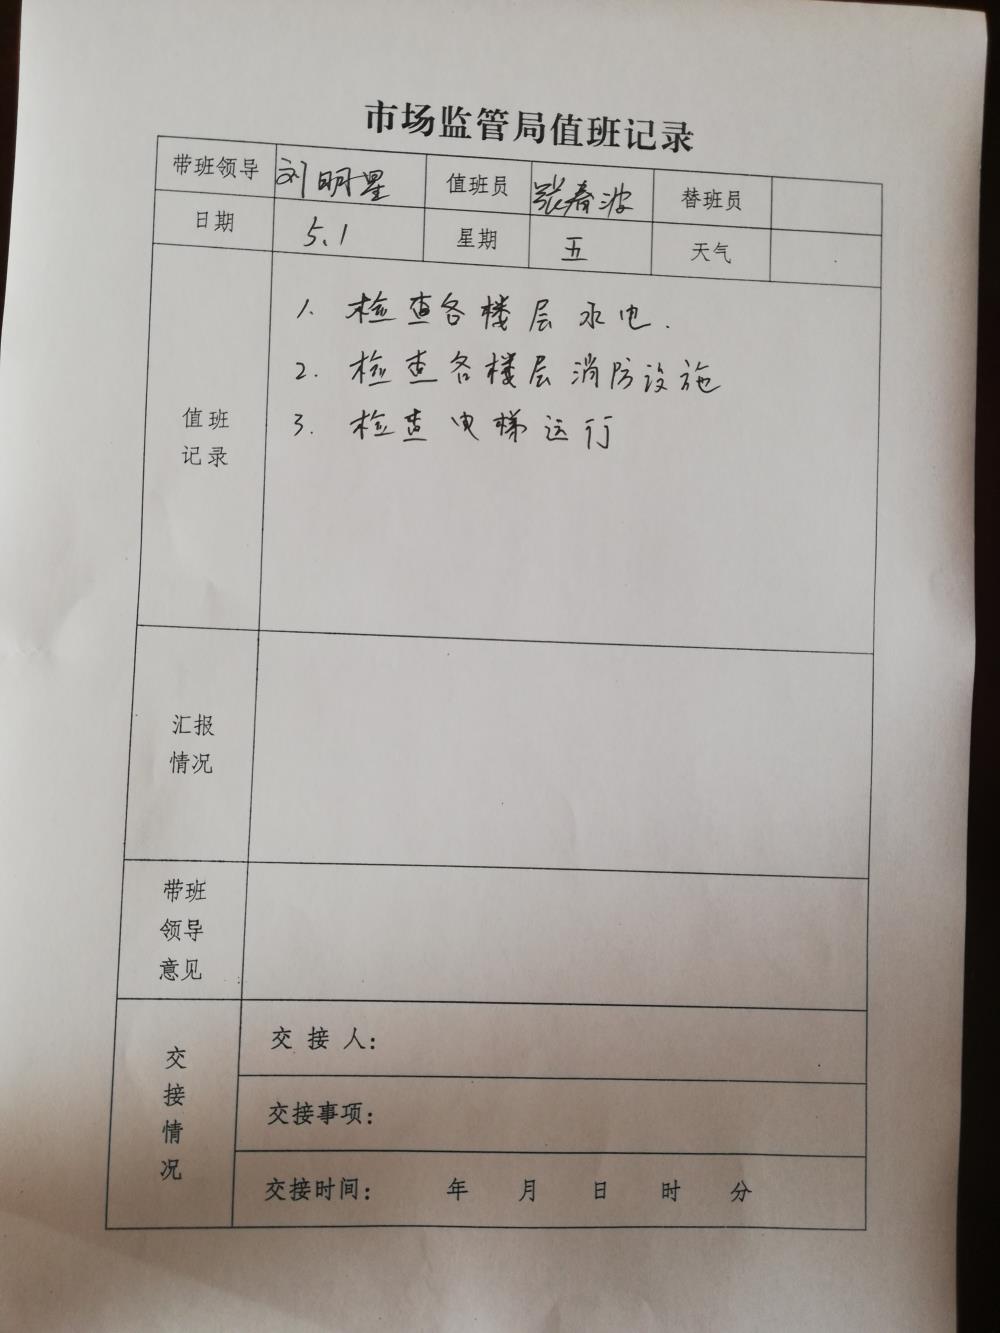 市场监管局值班记录
带班领导 刘明星 值班员 张春波 替班员
日期 5.1 星期 五 天气
值班
记录
1. 检查各楼层水电.
2. 检查各楼层消防设施
3. 检查电梯运行
汇报
情况
带班
领导
意见
交接情况
交接人：
交接事项：
交接时间： 年 月 日 时 分